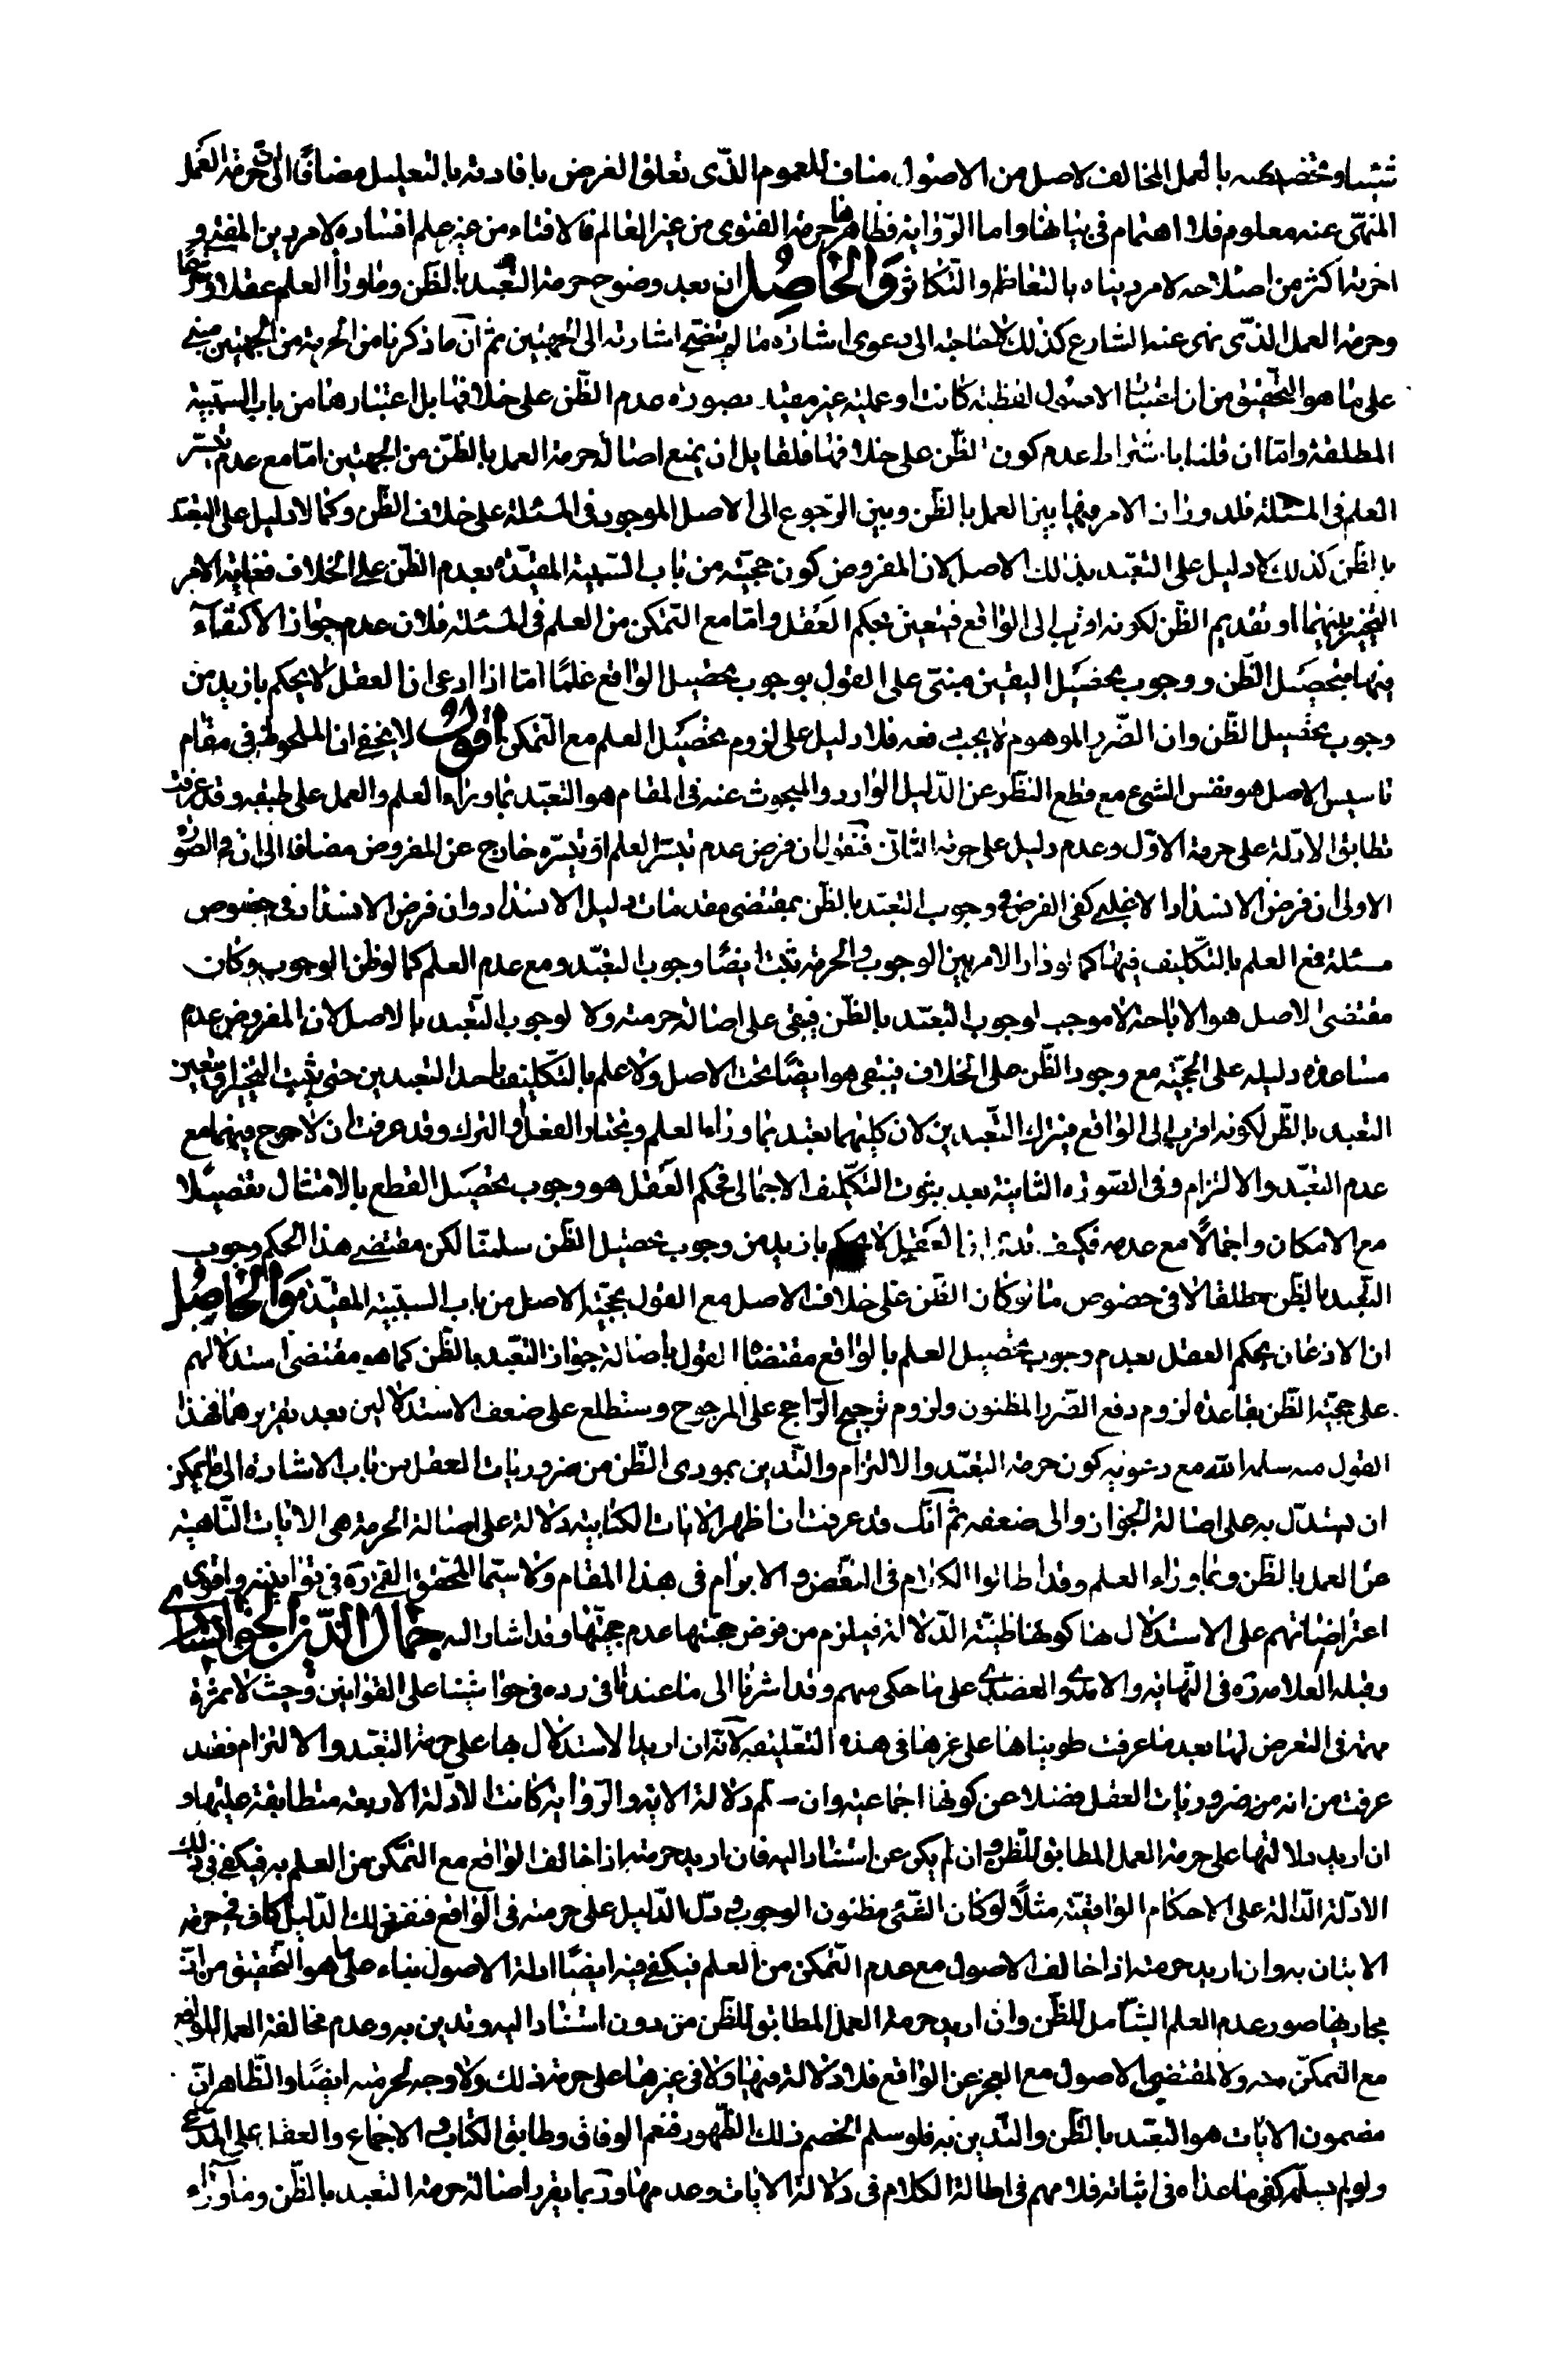 شيئا وتخصيصه بالعمل المخالف لاصل من الاصول مناف للعموم الذى تعلق الغرض بافادته بالتعليل مضافا الى ان حرمة العمل
المنهى عنه معلوم فلا اهتمام فى بيانها واما الرواية فظاهرها حرمة الفتوى من غير العالم فالافتاء من غير علم افساده لامر دين المفتى و
اخريه اكثر من اصلاحه لامر دنياه بالتفاخر والتكاثر والحاصل ان بعد وضوح حرمة التعبد بالظن وماوراء العلم عقلا وشرعا
وحرمة العمل الذى نهى عنه الشارع كذلك لا حاجة الى دعوى اشارة ما لم يتضح اشارته الى الجهتين ثم ان ما ذكرنا من الحرمة من الجهتين مبنى
على ما هو التحقيق من ان اعتبار الاصول لفظية كانت او عملية غير مقيد بصورة عدم الظن على خلافها بل اعتبارها من باب السببية
المطلقة واما ان قلنا باشتراط عدم كون الظن على خلافها فلقايل ان يمنع اصالة حرمة العمل بالظن من الجهتين اما مع عدم تيسر
العلم فى المسئلة فلدوران الامر فيها بين العمل بالظن وبين الرجوع الى الاصل الموجود فى المسئلة على خلاف الظن وكما لا دليل على التعبد
بالظن كذلك لا دليل على التعبد بذلك الاصل لان المفروض كون حجيته من باب السببية المقيدة بعدم الظن على الخلاف فغاية الامر
التخيير بينهما او تقديم الظن لكونه اقرب الى الواقع فيتعين بحكم العقل واما مع التمكن من العلم فى المسئلة فلان عدم جواز الاكتفاء
فيها بتحصيل الظن ووجوب تحصيل اليقين مبنى على القول بوجوب تحصيل الواقع علما اما اذا ادعى ان العقل لا يحكم بازيد من
وجوب تحصيل الظن وان الضرر الموهوم لا يجب دفعه فلا دليل على لزوم تحصيل العلم مع التمكن اقول لا يخفى ان الملحوظ فى مقام
تاسيس الاصل هو نفس الشىء مع قطع النظر عن الدليل الوارد والمبحوث عنه فى المقام هو التعبد بماوراء العلم والعمل على طبقه وقد عرفت
تطابق الادلة على حرمة الاول وعدم دليل على حرمة الثانى فنقول ان فرض عدم تيسر العلم او تيسره خارج عن المفروض مضافا الى ان فى الصورة
الاولى ان فرض الانسداد الاغلبى كفى الفرض فى وجوب التعبد بالظن بمقتضى مقدمات دليل الانسداد وان فرض الانسداد فى خصوص
مسئلة فمع العلم بالتكليف فيها كما لو دار الامر بين الوجوب والحرمة يثبت ايضا وجوب التعبد ومع عدم العلم كما لو ظن الوجوب وكان
مقتضى الاصل هو الاباحة لا موجب لوجوب التعبد بالظن فيبقى على اصالة حرمته ولا لوجوب التعبد بالاصل لان المفروض عدم
مساعدة دليله على الحجية مع وجود الظن على الخلاف فيبقى هو ايضا تحت الاصل ولا علم بالتكليف باحد التعبدين حتى يثبت التخيير او تعيين
التعبد بالظن لكونه اقرب الى الواقع فيترك التعبدين لان كليهما تعبد بماوراء العلم ويختار الفعل او الترك وقد عرفت ان لا حرج فيهما مع
عدم التعبد والالتزام وفى الصورة الثانية بعد ثبوت التكليف الاجمالى فحكم العقل هو وجوب تحصيل القطع بالامتثال تفصيلا
مع الامكان واجمالا مع عدمه فكيف ان العقل لا يحكم بازيد من وجوب تحصيل الظن سلمنا لكن مقتضى هذا الحكم وجوب
التعبد بالظن مطلقا لا فى خصوص ما لو كان الظن على خلاف الاصل مع القول بحجية الاصل من باب السببية المقيدة والحاصل
ان الاذعان بحكم العقل بعدم وجوب تحصيل العلم بالواقع مقتضاه القول باصالة جواز التعبد بالظن كما هو مقتضى استدلالهم
على حجية الظن بقاعدة لزوم دفع الضرر المظنون ولزوم ترجيح الراجح على المرجوح وستطلع على ضعف الاستدلالين بعد تقريرهما فهذا
القول منه سلمه الله مع دعويه كون حرمة التعبد والالتزام والتدين بمودى الظن من ضروريات العقل من باب الاشارة الى ما يمكن
ان يستدل به على اصالة الجواز والى ضعفه ثم انك قد عرفت ان اظهر الايات الكتابية دلالة على اصالة الحرمة هى الايات الناهية
عن العمل بالظن وبماوراء العلم وقد اطالوا الكلام فى النقض والابرام فى هذا المقام ولا سيما المحقق القمى ره فى قوانينه واقوى
اعتراضاتهم على الاستدلال هنا كونها ظنية الدلالة فيلزم من فرض حجيتها عدم حجيتها وقد اشار اليه جمال الدين الخوانسارى
وقبله العلامة ره فى النهاية والامدى والعضدى على ما حكى عنهم وقد اشرنا الى ما عندنا فى رده فى حواشينا على القوانين وحيث لا ثمرة
مهمة فى التعرض لها بعد ما عرفت طويناها على غرها فى هذه التعليقة لانه ان اريد الاستدلال بها على حرمة التعبد والالتزام فقد
عرفت من انه من ضروريات العقل فضلا عن كونها اجماعية وان تم دلالة الاية والرواية كانت الادلة الاربعة متطابقة عليها و
ان اريد دلالتها على حرمة العمل المطابق للظن وان لم يكن عن استناد اليه فان اريد حرمته اذا خالف الواقع مع التمكن من العلم به فيكفى فى ذلك
الادلة الدالة على الاحكام الواقعية مثلا لو كان الشىء مظنون الوجوب ودل الدليل على حرمته فى الواقع فنفس ذلك الدليل كاف فى حرمة
الاتيان به وان اريد حرمته اذا خالف الاصول مع عدم التمكن من العلم فيكفى فيه ايضا ادلة الاصول بناء على ما هو التحقيق من ان
مجاريها صور عدم العلم الشامل للظن وان اريد حرمة العمل المطابق للظن من دون استناد اليه وتدين به وعدم مخالفة العمل للواقع
مع التمكن منه ولا لمقتضى الاصول مع العجز عن الواقع فلا دلالة فيها ولا فى غيرها على حرمة ذلك ولا وجه لحرمته ايضا والظاهر ان
مضمون الايات هو التعبد بالظن والتدين به فلو سلم الخصم ذلك الظهور فنعم الوفاق وطابق الكتاب الاجماع والعقل على المدعى
ولو لم يسلمه كفى ما عداه فى اثباته فلا مهم فى اطالة الكلام فى دلالة الايات وعدمها وربما يقرر اصالة حرمة التعبد بالظن وماوراء